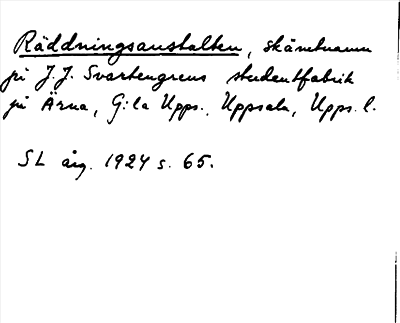 Räddningsanstalten, skämtnamn
på J.J. Svartengrens studentfabrik
på Ärna, G:la Upps., Uppsala, Upps. l.
SL årg. 1924 s. 65.